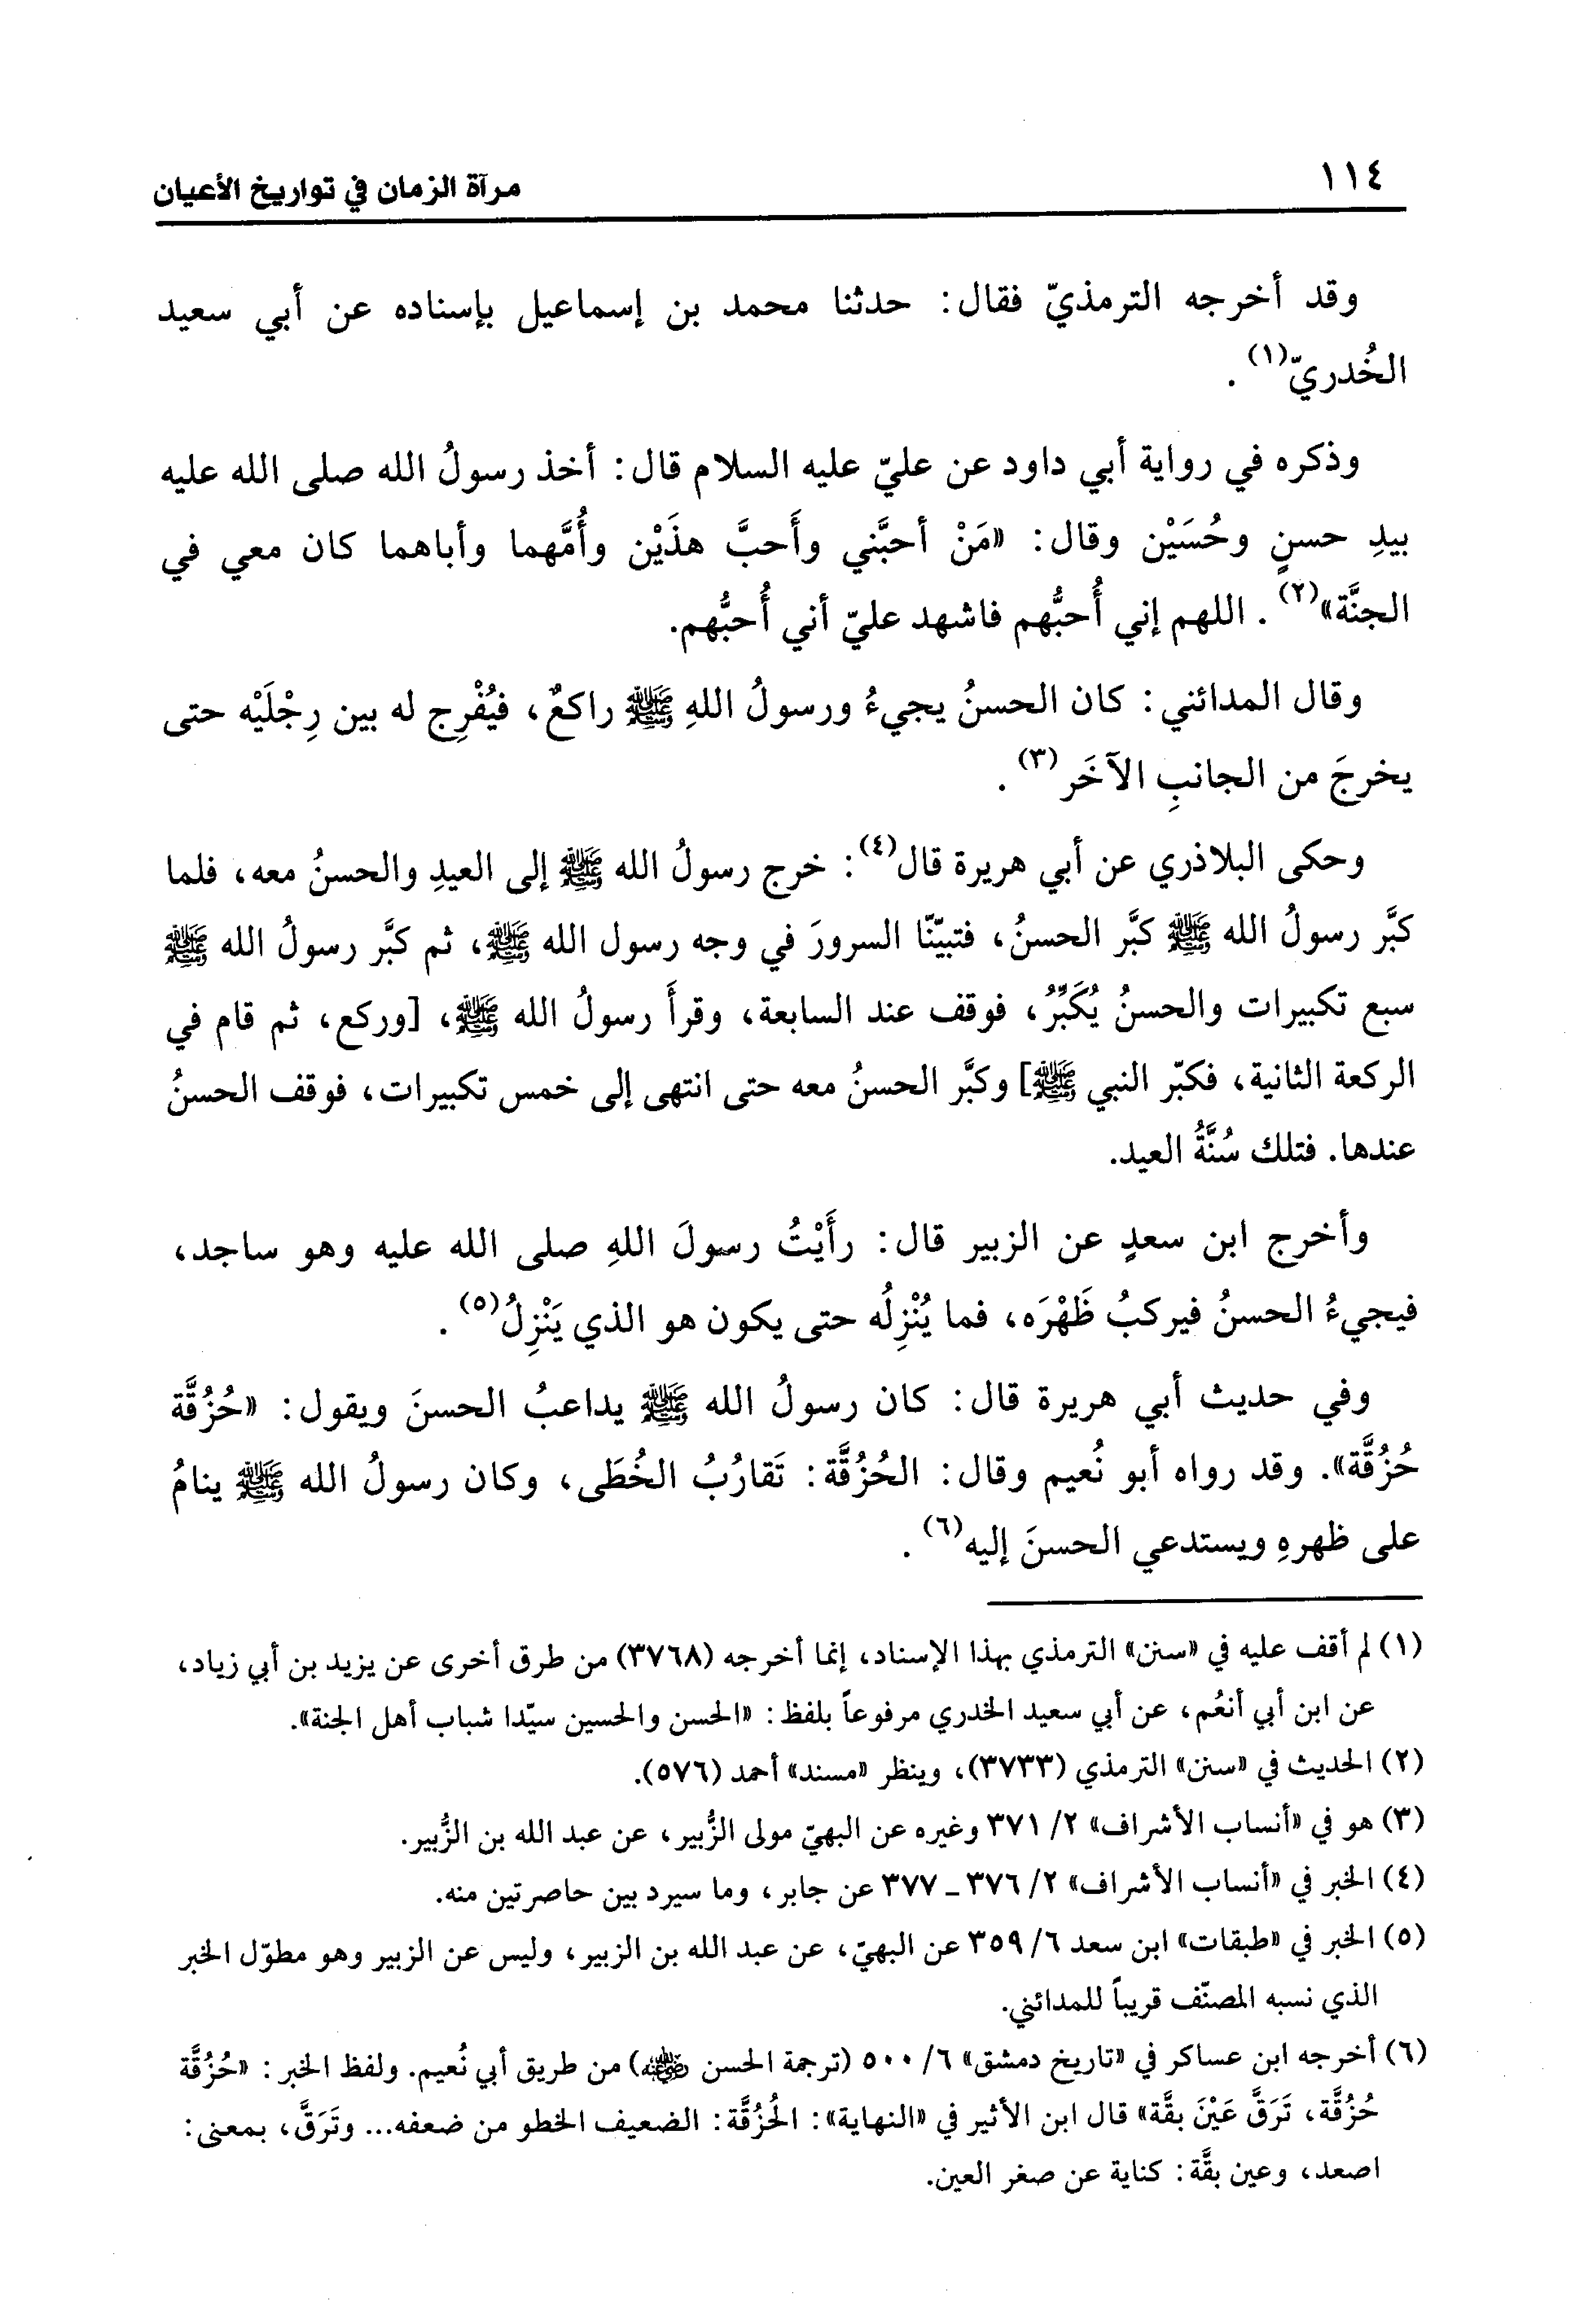 ١١٤
مرآة الزمان في تواريخ الأعيان
وقد أخرجه الترمذيّ فقال: حدثنا محمد بن إسماعيل بإسناده عن أبي سعيد
الخُدريّ(١) .
وذكره في رواية أبي داود عن عليّ عليه السلام قال: أخذ رسولُ الله صلى الله عليه
بيدِ حسنٍ وحُسَيْن وقال: «مَنْ أحبَّني وأَحبَّ هذَيْن وأُمَّهما وأباهما كان معي في
الجنَّة»(٢) . اللهم إني أُحبُّهم فاشهد عليّ أني أُحبُّهم.
وقال المدائني: كان الحسنُ يجيءُ ورسولُ اللهِ ﷺ راكعٌ، فيُفْرِج له بين رِجْلَيْه حتى
يخرجَ من الجانبِ الآخَر(٣) .
وحكى البلاذري عن أبي هريرة قال(٤): خرج رسولُ الله ﷺ إلى العيدِ والحسنُ معه، فلما
كبَّر رسولُ الله ﷺ كبَّر الحسنُ، فتبيّنّا السرورَ في وجه رسول الله ﷺ، ثم كبَّر رسولُ الله ﷺ
سبع تكبيرات والحسنُ يُكَبِّرُ، فوقف عند السابعة، وقرأَ رسولُ الله ﷺ، [وركع، ثم قام في
الركعة الثانية، فكبّر النبي ﷺ] وكبَّر الحسنُ معه حتى انتهى إلى خمس تكبيرات، فوقف الحسنُ
عندها. فتلك سُنَّةُ العيد.
وأخرج ابن سعدٍ عن الزبير قال: رأَيْتُ رسولَ اللهِ صلى الله عليه وهو ساجد،
فيجيءُ الحسنُ فيركبُ ظَهْرَه، فما يُنْزِلُه حتى يكون هو الذي يَنْزِلُ(٥) .
وفي حديث أبي هريرة قال: كان رسولُ الله ﷺ يداعبُ الحسنَ ويقول: «حُزُقَّة
حُزُقَّة». وقد رواه أبو نُعيم وقال: الحُزُقَّة: تَقارُبُ الخُطَى، وكان رسولُ الله ﷺ ينامُ
على ظهرهِ ويستدعي الحسنَ إليه(٦) .
(١) لم أقف عليه في «سنن» الترمذي بهذا الإسناد، إنما أخرجه (٣٧٦٨) من طرق أخرى عن يزيد بن أبي زياد،
عن ابن أبي أنعُم، عن أبي سعيد الخدري مرفوعاً بلفظ: «الحسن والحسين سيّدا شباب أهل الجنة».
(٢) الحديث في «سنن» الترمذي (٣٧٣٣)، وينظر «مسند» أحمد (٥٧٦).
(٣) هو في «أنساب الأشراف» ٢/ ٣٧١ وغيره عن البهيّ مولى الزُّبير، عن عبد الله بن الزُّبير.
(٤) الخبر في «أنساب الأشراف» ٢/ ٣٧٦ ـ ٣٧٧ عن جابر، وما سيرد بين حاصرتين منه.
(٥) الخبر في «طبقات» ابن سعد ٦/ ٣٥٩ عن البهيّ، عن عبد الله بن الزبير، وليس عن الزبير وهو مطوّل الخبر
الذي نسبه المصنّف قريباً للمدائني.
(٦) أخرجه ابن عساكر في «تاريخ دمشق» ٦/ ٥٠٠ (ترجمة الحسن رضي الله عنه) من طريق أبي نُعيم. ولفظ الخبر: «حُزُقَّة
حُزُقَّة، تَرَقَّ عَيْنَ بقَّة» قال ابن الأثير في «النهاية»: الحُزُقَّة: الضعيف الخطو من ضعفه... وتَرَقَّ، بمعنى:
اصعد، وعين بقَّة: كناية عن صغر العين.